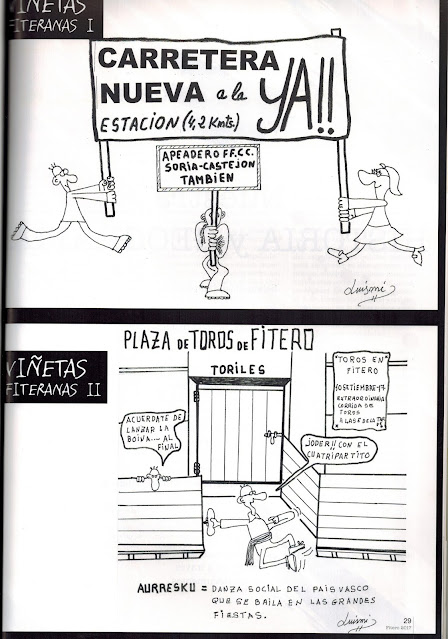 VIÑETAS
FITERANAS I
CARRETERA
NUEVA a la YA!!
ESTACION (4,2 Kmts.)
APEADERO FF.CC.
SORIA-CASTEJON
TAMBIEN
Luismi
VIÑETAS
FITERANAS II
PLAZA DE TOROS DE FITERO
TORILES
TOROS EN
FITERO
10 SETIEMBRE-17
EXTRAORDINARIA
CORRIDA DE
TOROS
A LAS 6 DE LA
ACUERDATE DE
LANZAR LA
BOINA.... AL
FINAL
¡JODER!! CON EL
CUATRIPARTITO
AURRESKU = DANZA SOCIAL DEL PAIS VASCO
QUE SE BAILA EN LAS GRANDES
FIESTAS.
Luismi
29
Fitero 2017